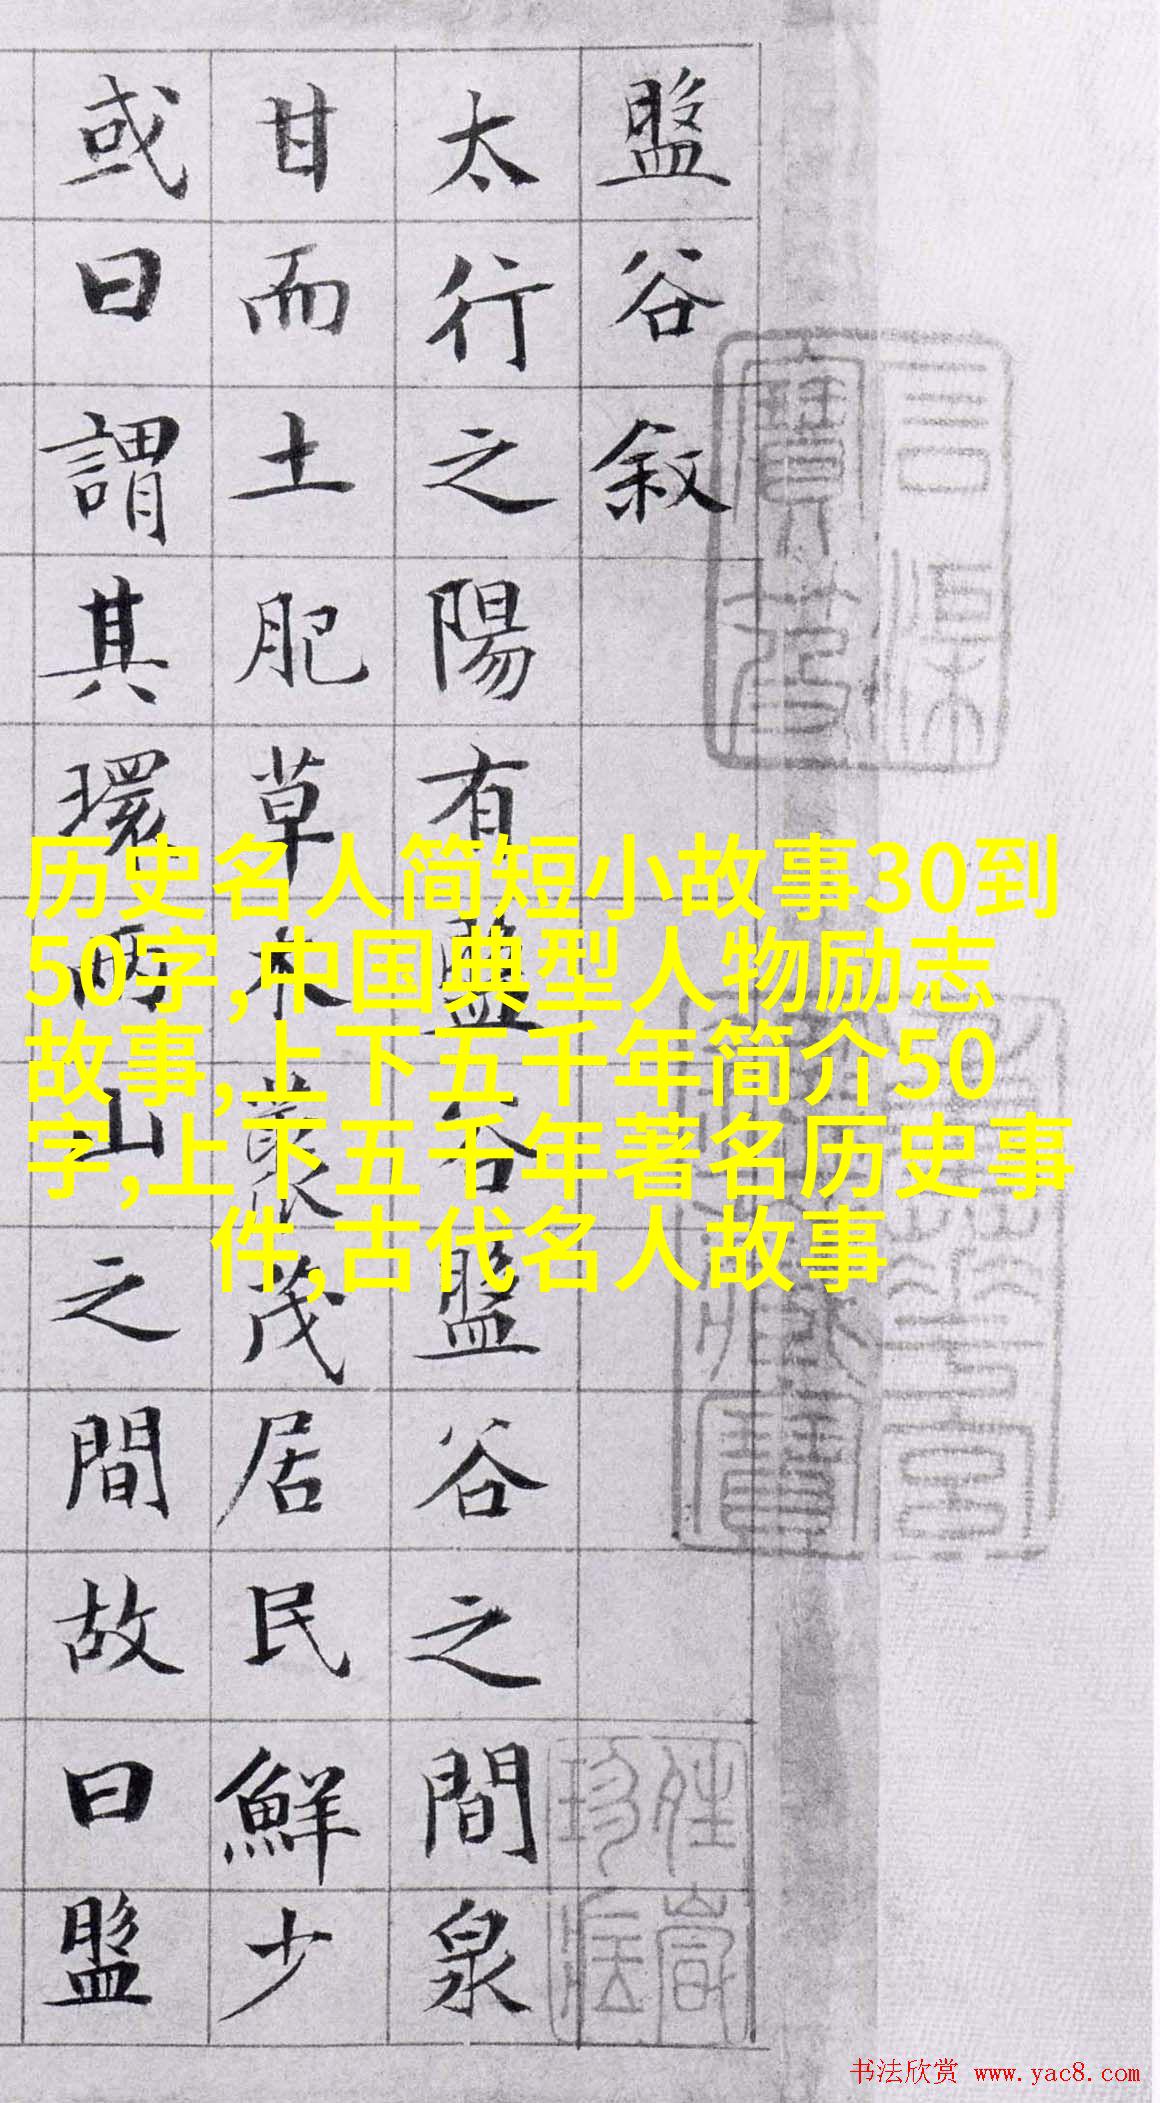 盤谷敘
太行之陽有盤谷盤谷之間泉
甘而土肥草木叢茂居民鮮少
或曰謂其環兩山之間故曰盤
历史名人简短小故事30到
50字,中国典型人物励志
故事,上下五千年简介50
字,上下五千年著名历史事
件,古代名人故事
书法欣赏 www.yac8.com